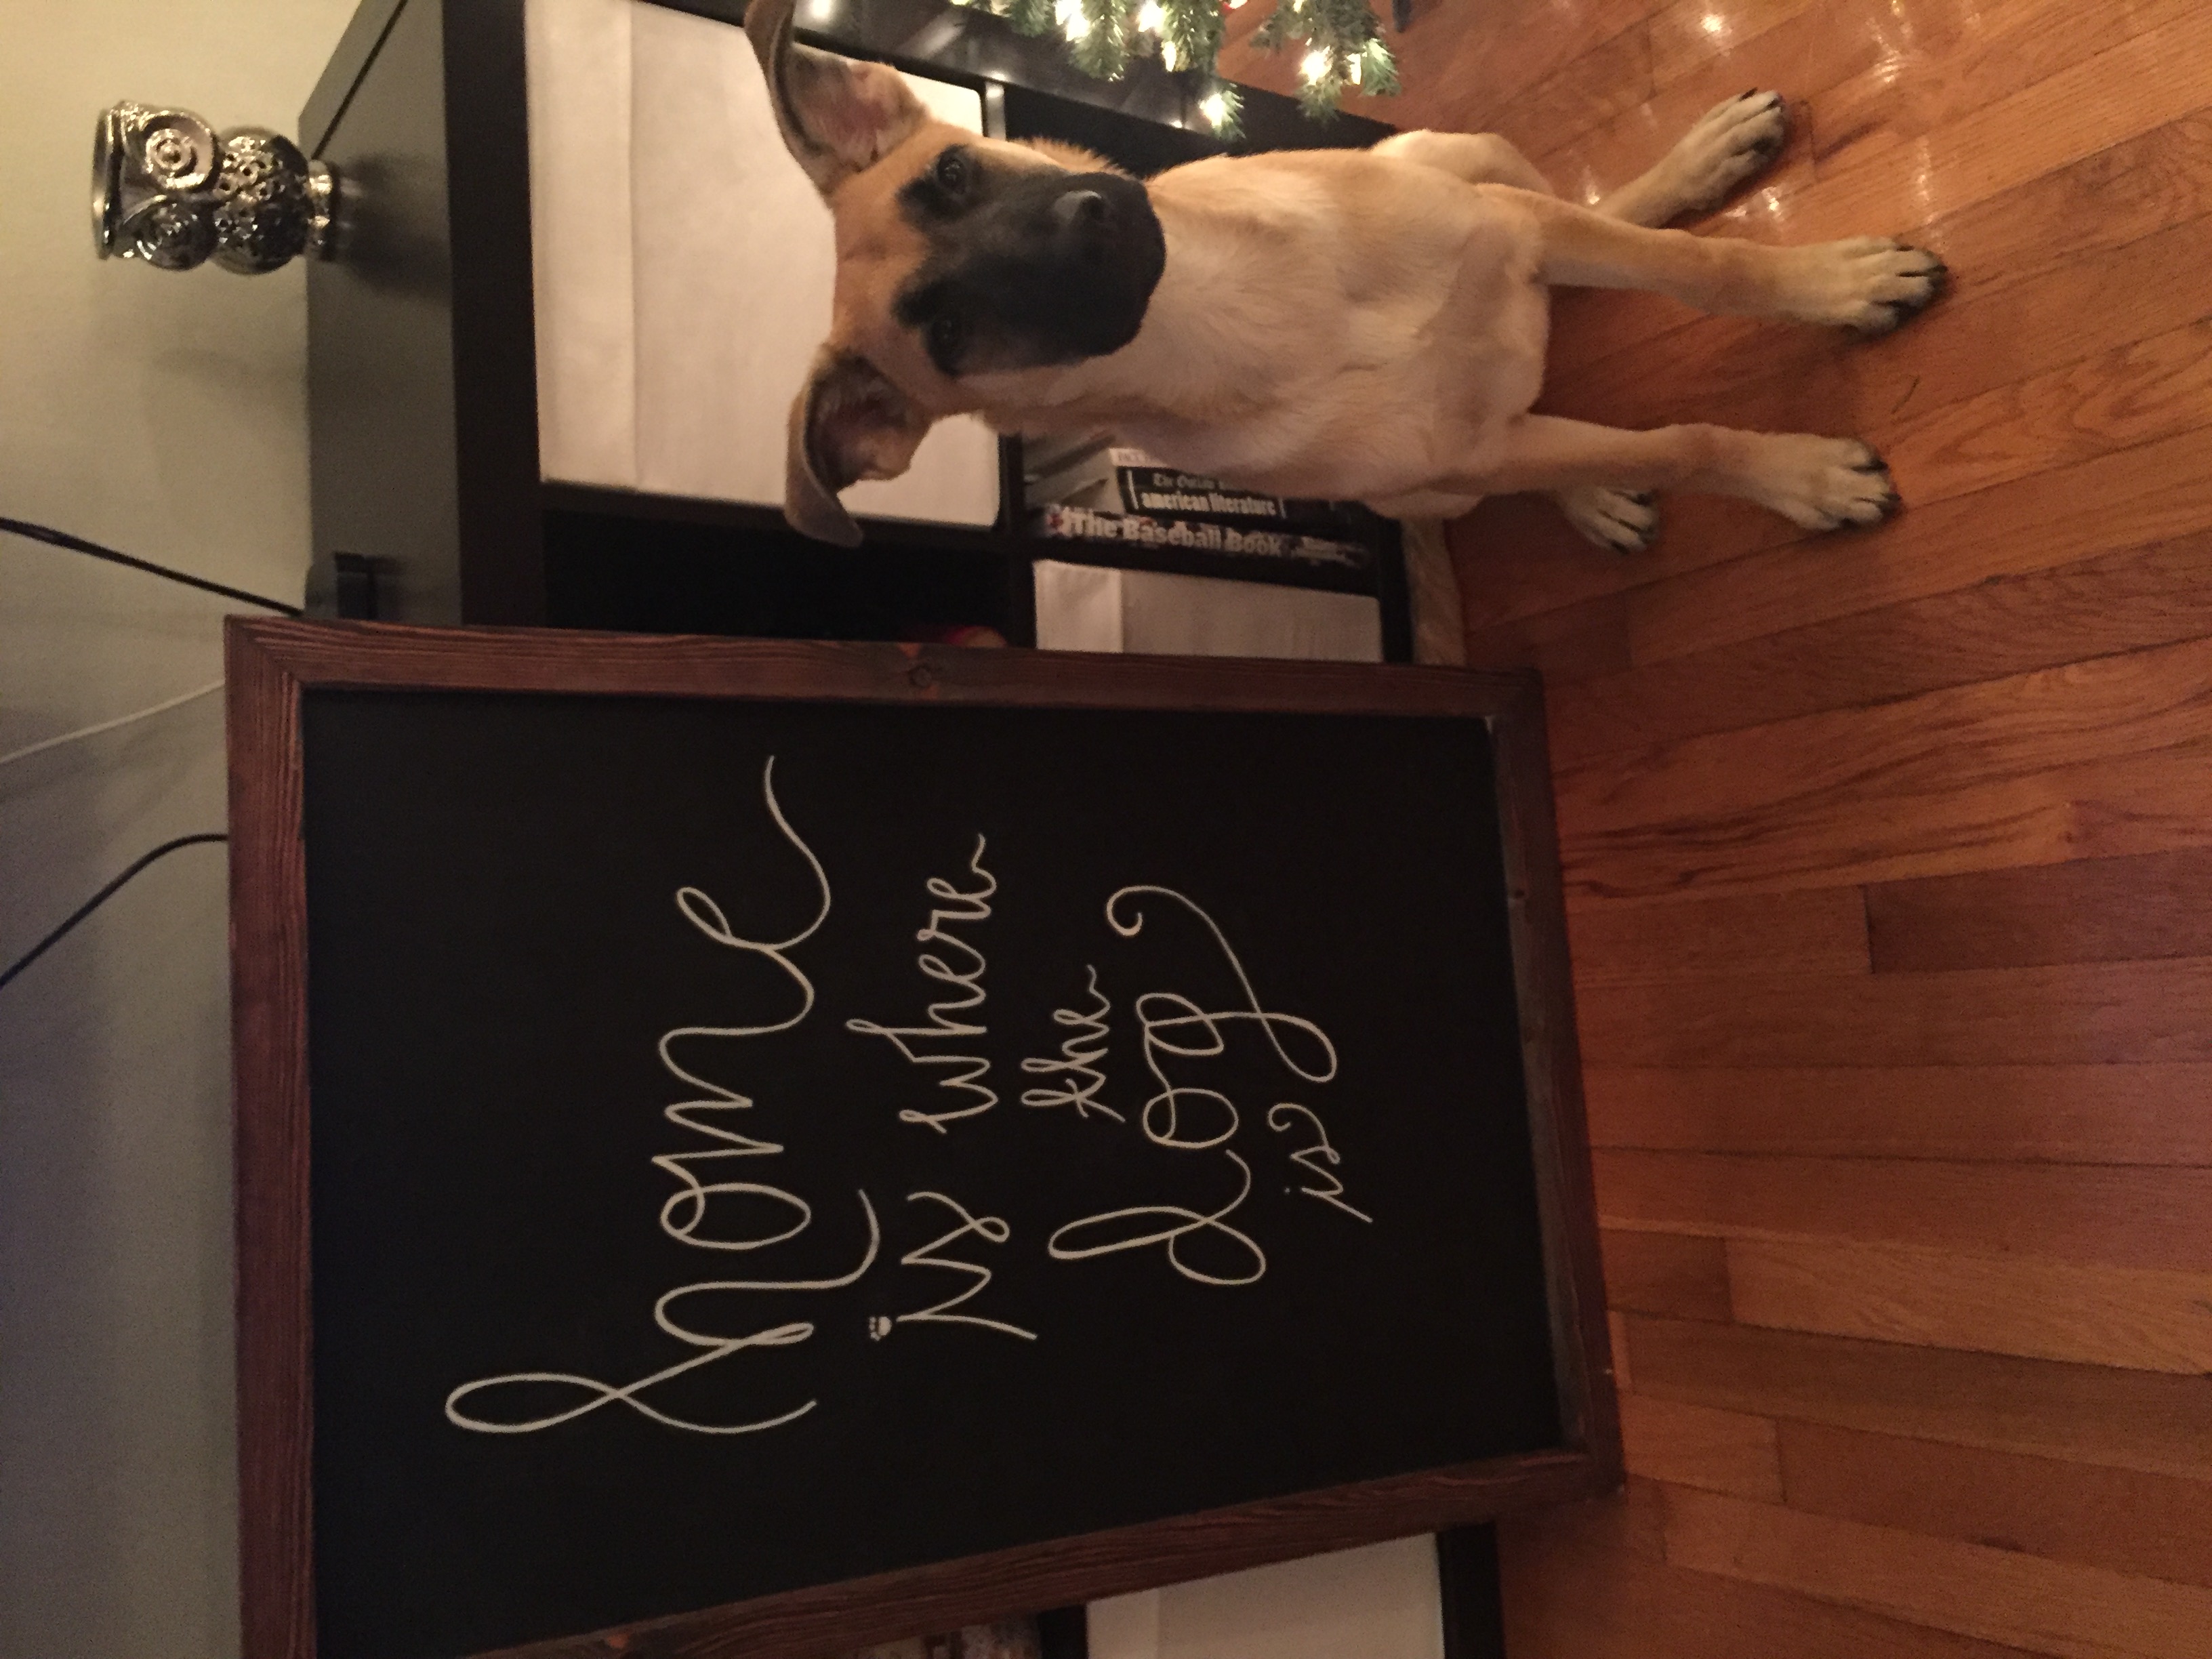 home
is where
the
dog
is
The Baseball book
american literature